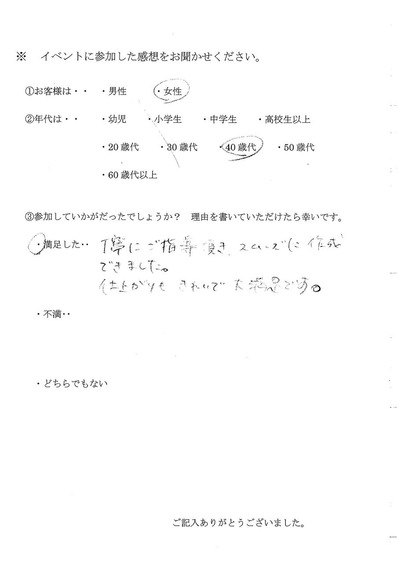 ※ イベントに参加した感想をお聞かせください。
①お客様は・・ ・男性 ・女性
②年代は・・ ・幼児 ・小学生 ・中学生 ・高校生以上
・20歳代 ・30歳代 ・40歳代 ・50歳代
・60歳代以上
③参加していかがだったでしょうか? 理由を書いていただけたら幸いです。
・満足した・・ 丁寧にご指導頂き、スムーズに作成
できました。
仕上がりもきれいで大満足です。
・不満・・
・どちらでもない
ご記入ありがとうございました。